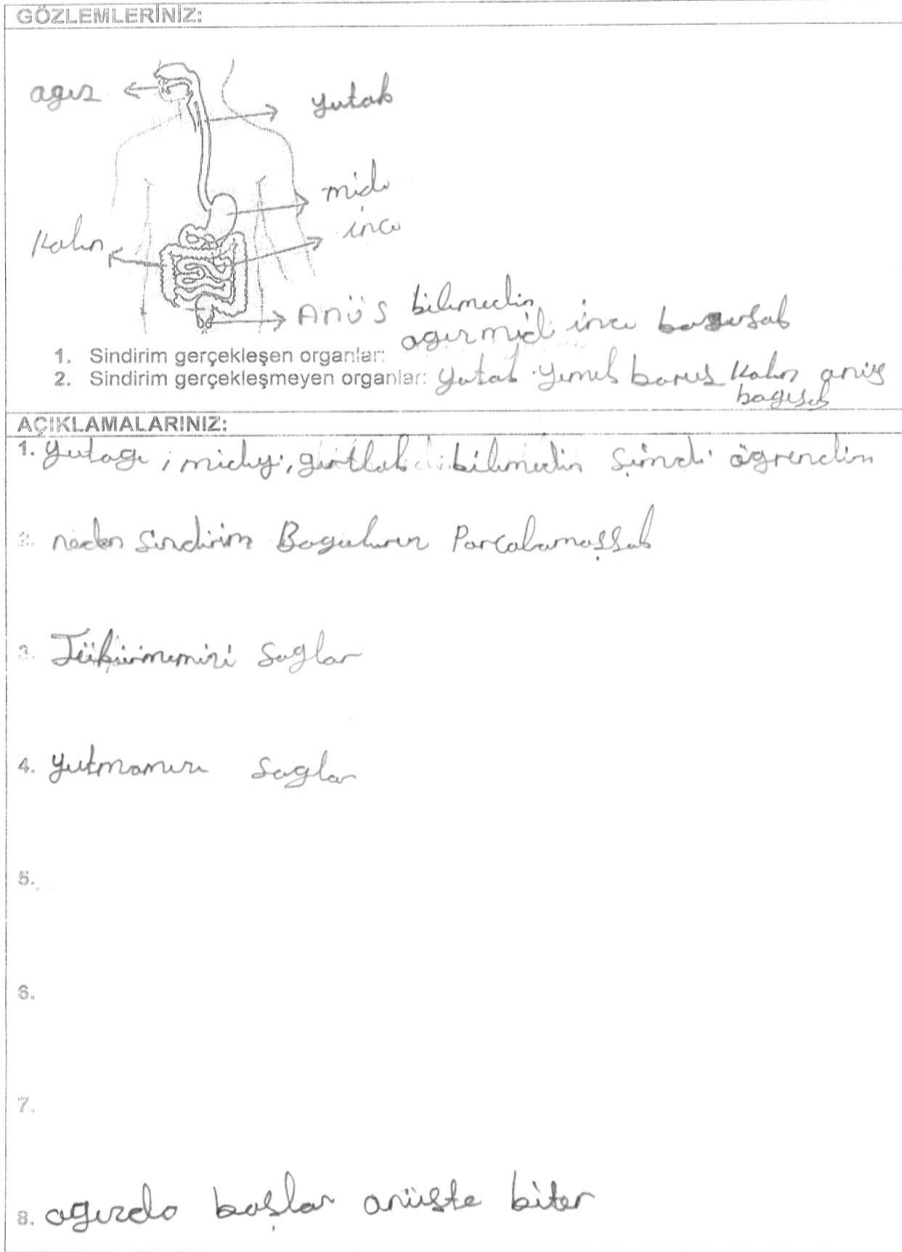 GÖZLEMLERİNİZ:
agız
yutak
mide
ince
Kalın
Anüs bilimedin
1. Sindirim gerçekleşen organlar: agız mide ince bagırsak
2. Sindirim gerçekleşmeyen organlar: yutak yemek borus Kalın anüs
bagısak
AÇIKLAMALARINIZ:
1. yutagı, midey, gırtlak bilimedin şimdi ögrendim
2. neden sindirim Parcalamassak
3. Tükürmemizi saglar
4. yutmamızı saglar
5.
6.
7.
8. agızda başlar anüste biter